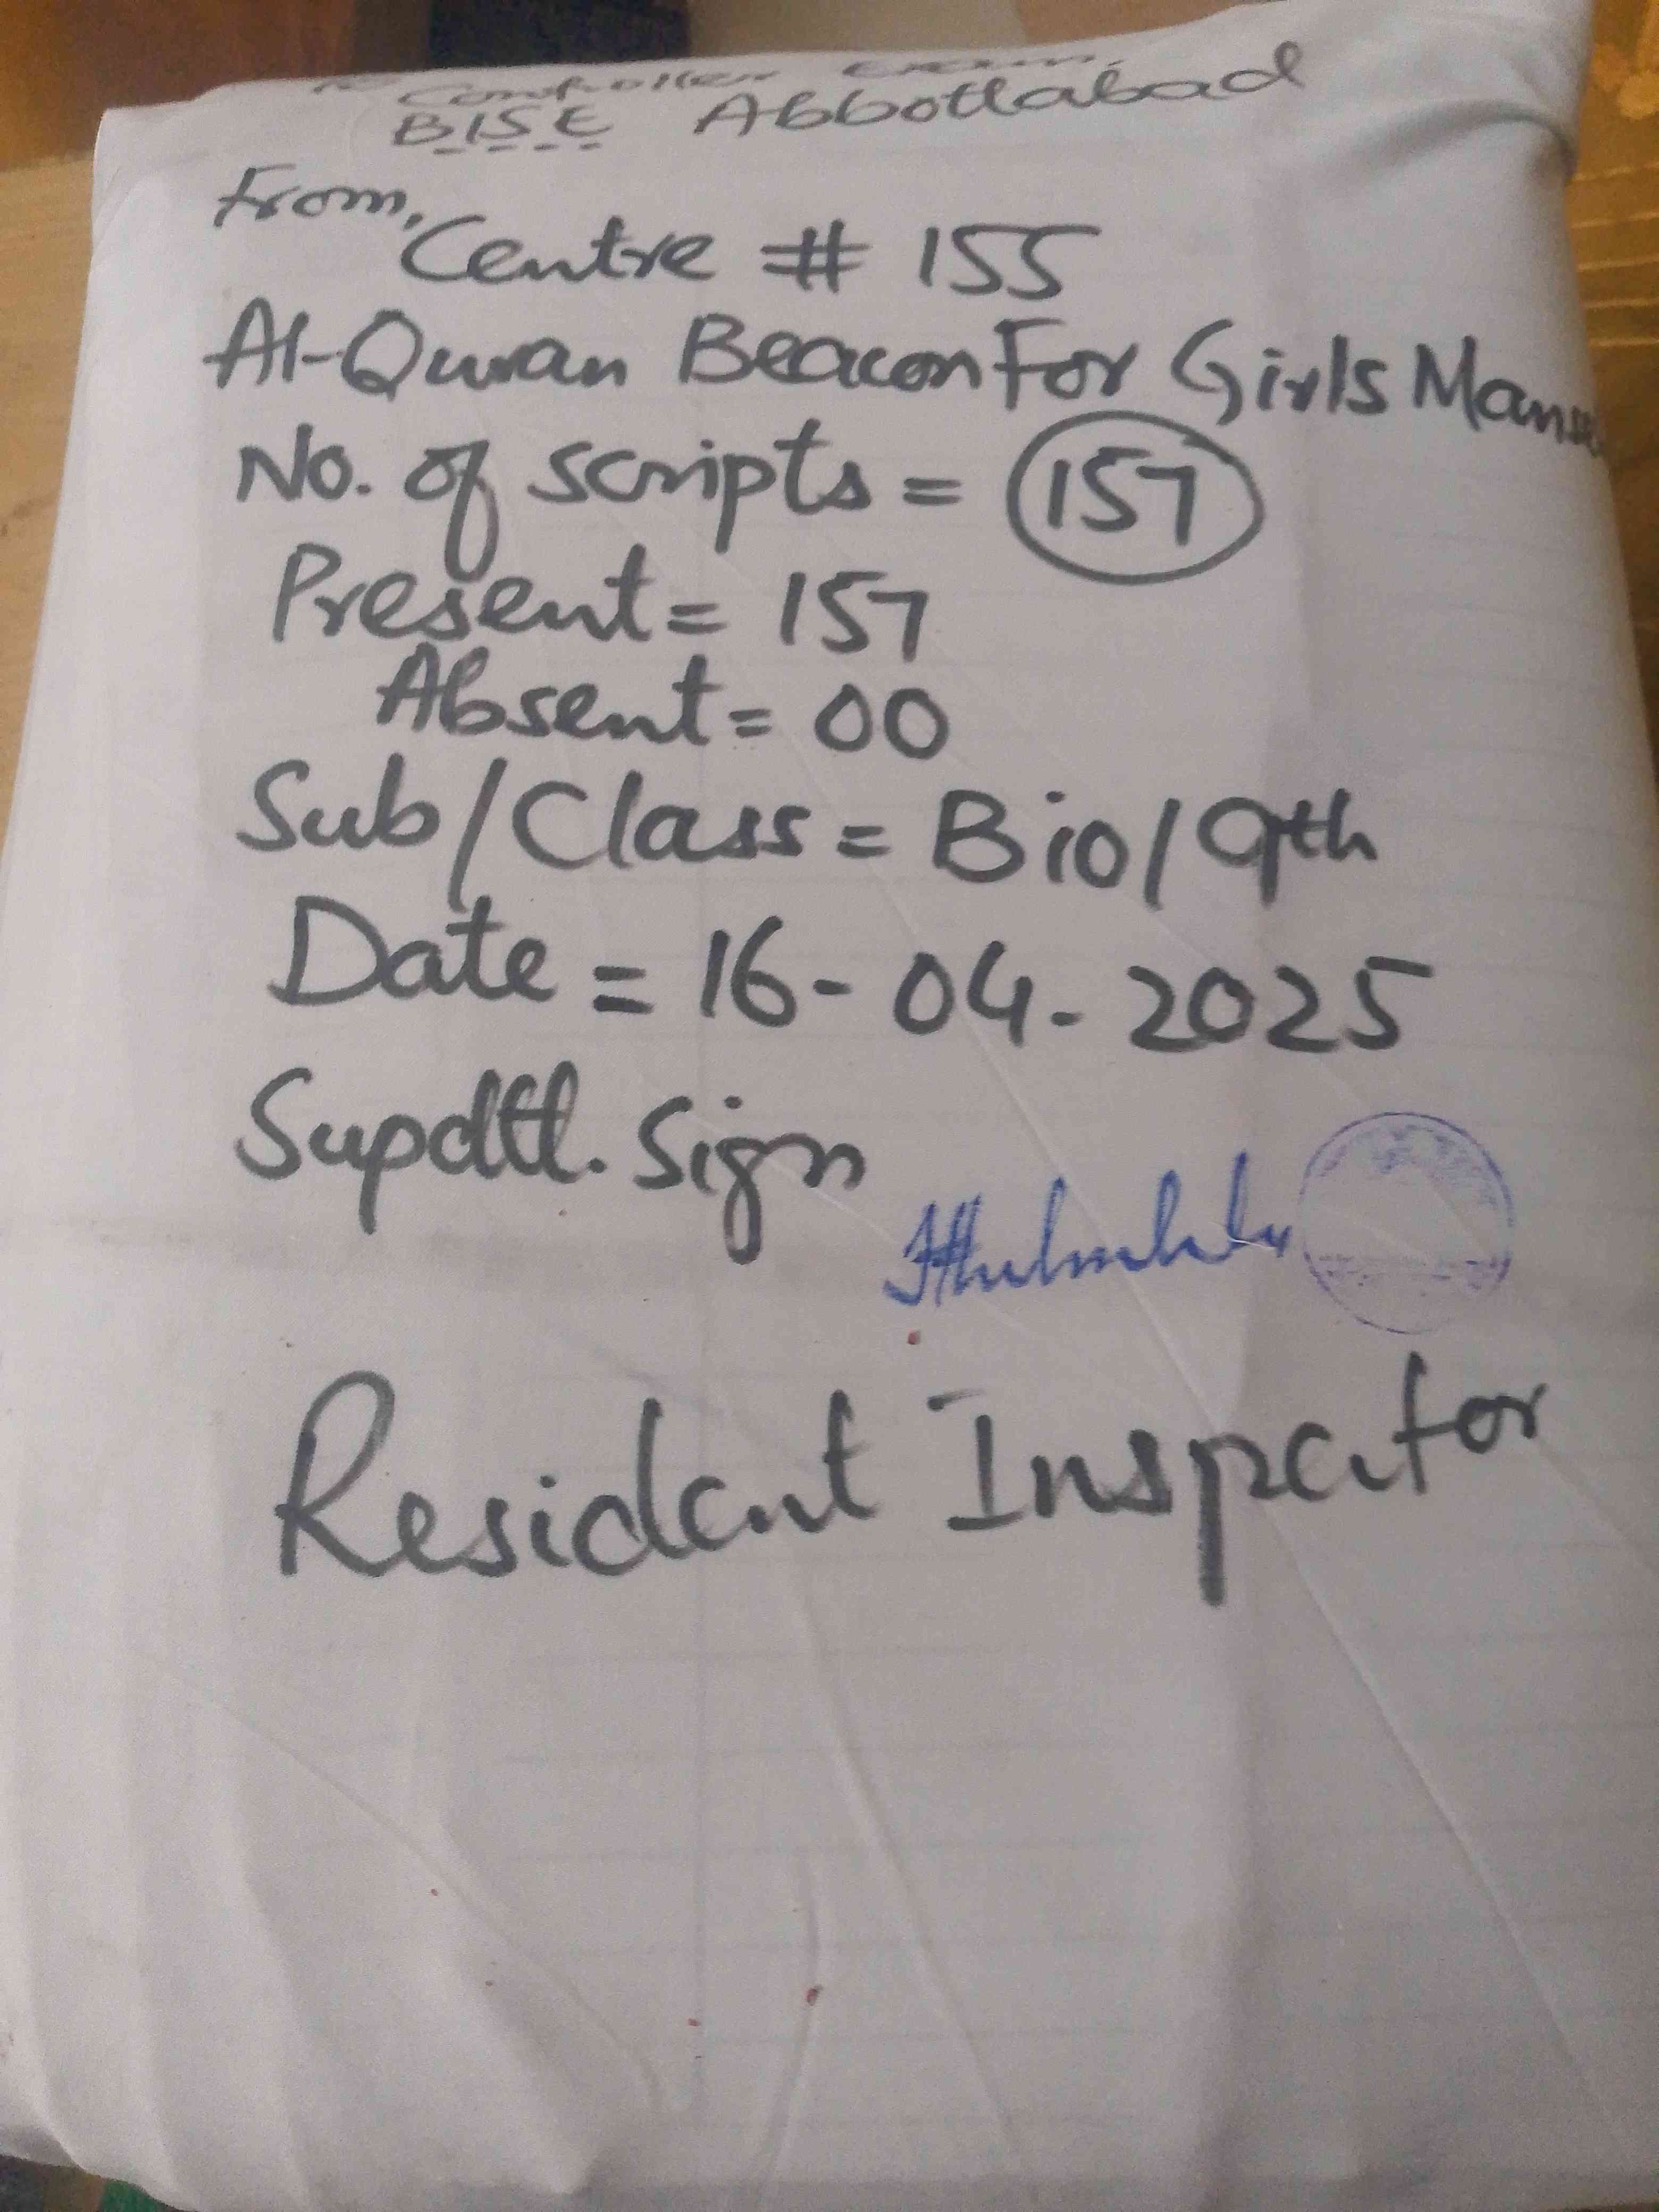 Controller Exam.
BISE Abbottabad
From,
Centre # 155
Al-Quran Beacon For Girls
No. of scripts = 157
Present = 157
Absent = 00
Sub/Class = Bio/9th
Date = 16-04-2025
Supdtt. Sign
Resident Inspector